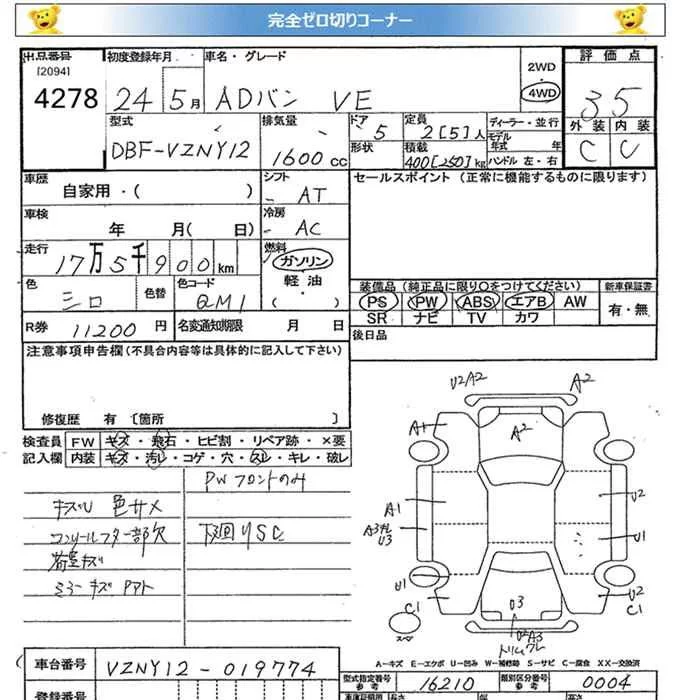 完全ゼロ切りコーナー
出品番号 初度登録年月 車名・グレード 2WD 評価点
[2094]
4278 24 5月 ADバン VE 4WD 3.5
型式 排気量 ドア 5 定員 2[5]人 ディーラー・並行 外装 内装
DBF-VZNY12 1600cc 形状 積載 400[250]kg モデル年式 年 C C
ハンドル 左・右
車歴 シフト セールスポイント(正常に機能するものに限ります)
自家用・( ) - AT
車検 冷房
年 月( 日) - AC
走行 燃料
17万5千900km ガソリン
軽油
( )
色 色替 色コード 装備品(純正品に限り○をつけてください) 新車保証書
シロ QM1 PS PW ABS エアB AW 有・無
SR ナビ TV カワ
R券 11200円 名変通知期限 月 日 後日品
注意事項申告欄(不具合内容等は具体的に記入して下さい)
修復歴 有 [箇所 ]
検査員 FW キズ・飛石・ヒビ割・リペア跡・×要
記入欄 内装 キズ・汚レ・コゲ・穴・スレ・キレ・破レ
PWフロントのみ
キズU 色サメ
コンソールフター部欠 下廻りSC
荷室キズ
ミラーキズ Pアト
U2A2 A2
A1 A2
A1 U2
A3 U3 U1
U1 U2
C1 C1
U3
U2A3
スペア
A-キズ E-エクボ U-凹み W-補修跡 S-サビ C-腐食 XX-交換済
車台番号 VZNY12-019774
型式指定番号 参考 16210 類別区分番号 参考 0004
登録番号 車庫証明 長さ 幅 高さ